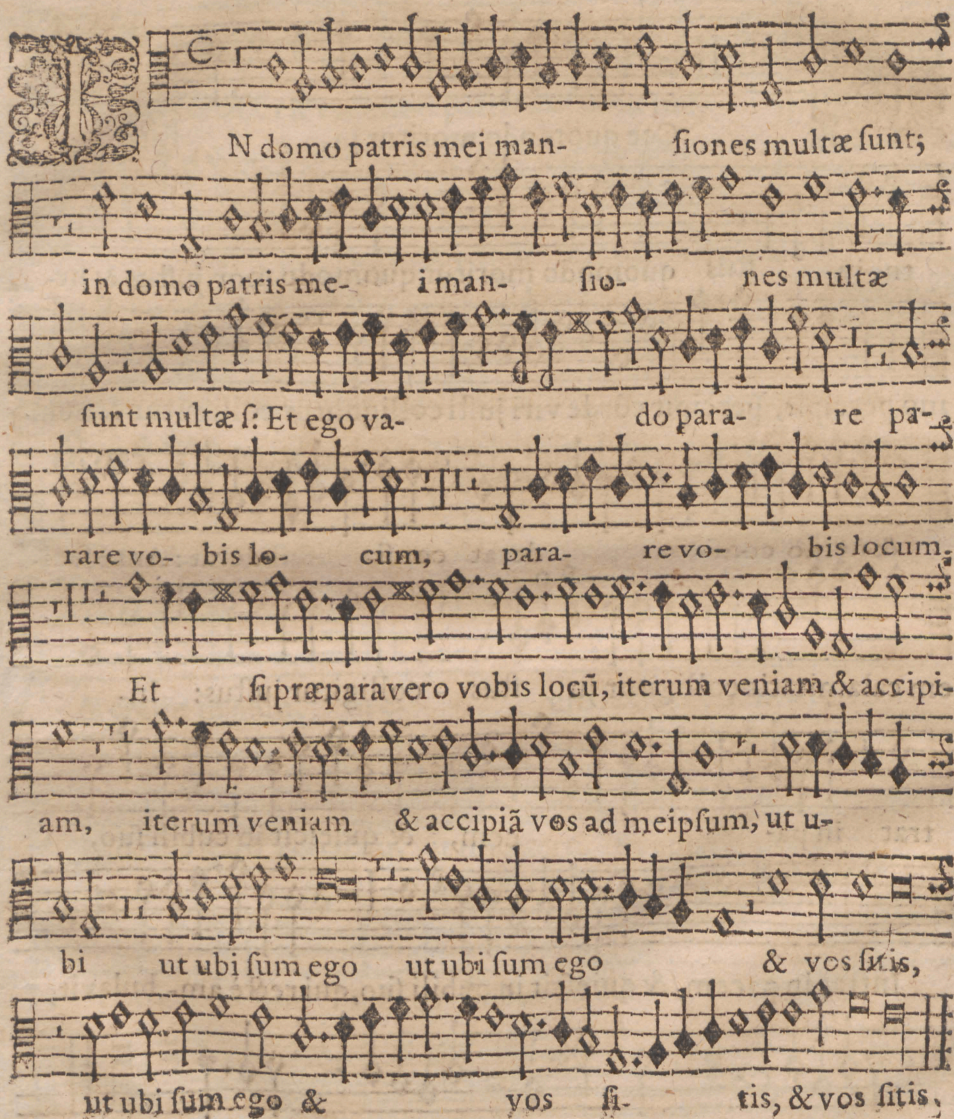 IN domo patris mei man- ſiones multæ ſunt;
in domo patris me- i man- ſio- nes multæ
ſunt multæ ſ: Et ego va- do para- re pa-
rare vo- bis lo- cum, para- re vo- bis locum.
Et ſi præparavero vobis locū, iterum veniam & accipi-
am, iterum veniam & accipiã vos ad meipſum, ut u-
bi ut ubi ſum ego ut ubi ſum ego & vos ſitis,
ut ubi ſum ego & vos ſi- tis, & vos ſitis.